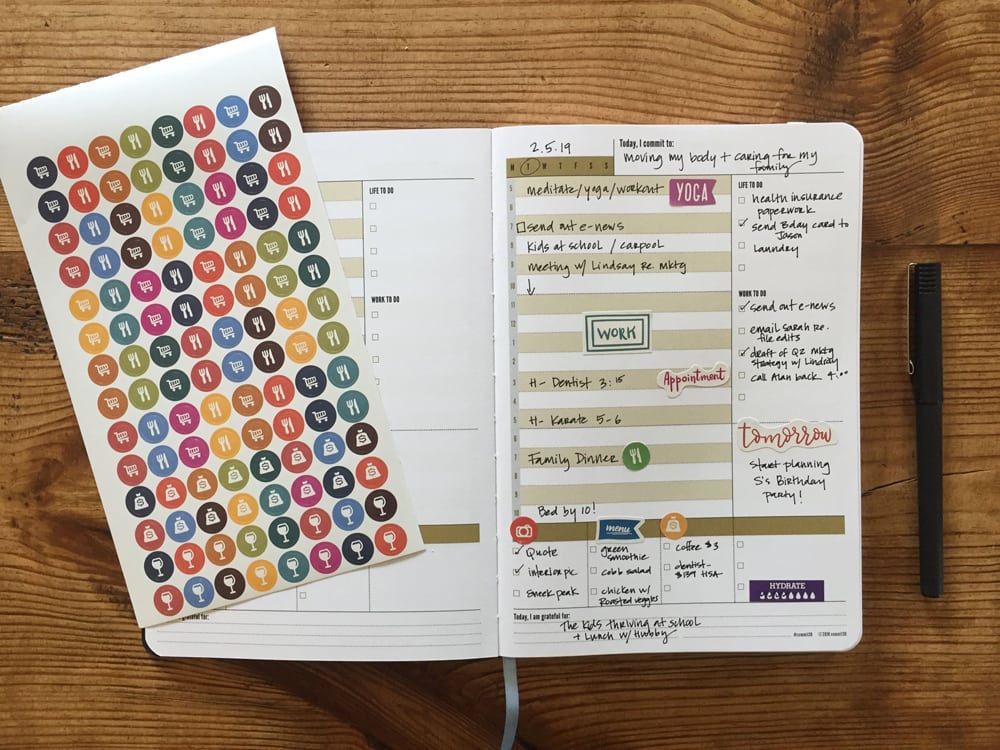 LIFE TO DO
WORK TO DO
grateful for:
2.5.19
Today, I commit to:
moving my body + caring for my
family
M T W T F S S
5
meditate/yoga/workout
YOGA
6
7
send out e-news
8
Kids at school / carpool
9
meeting w/ Lindsay re. mktg
10
11
12
WORK
1
2
3
H- Dentist 3:15
Appointment
4
5
H- Karate 5-6
6
7
Family Dinner
8
9
10
Bed by 10!
LIFE TO DO
health insurance
paperwork
send Bday card to
Jason
laundry
WORK TO DO
send out e-news
email sarah re.
file edits
draft of Q2 mktg
strategy w/ Lindsay
call Alan back 4:00
tomorrow
Start planning
S's Birthday
Party!
Quote
interior pic
Sneek peak
menu
green
smoothie
cobb salad
chicken w/
Roasted veggies
$
coffee $3
dentist-
$139 HSA
HYDRATE
Today, I am grateful for:
The kids thriving at school
+ Lunch w/ Hubby
#commit30 ©2018 commit30